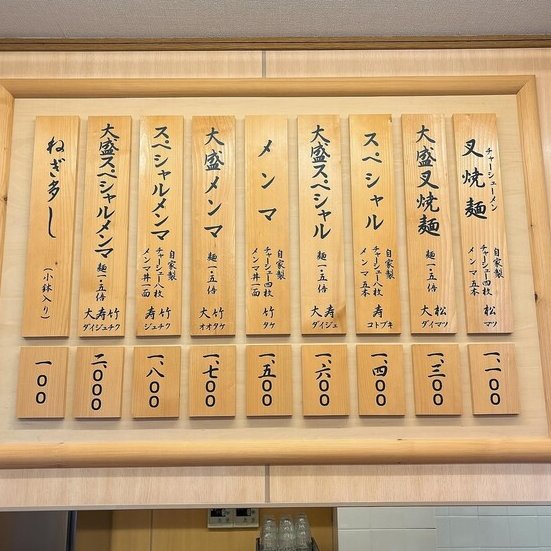 チャーシューメン
叉焼麺
自家製
チャーシュー四枚
メンマ五本
松
マツ
一、一〇〇
大盛叉焼麺
麺一・五倍
大松
ダイマツ
一、三〇〇
スペシャル
自家製
チャーシュー八枚
メンマ五本
寿
コトブキ
一、四〇〇
大盛スペシャル
麺一・五倍
大寿
ダイジュ
一、六〇〇
メンマ
自家製
チャーシュー四枚
メンマ丼一面
竹
タケ
一、五〇〇
大盛メンマ
麺一・五倍
大竹
オオタケ
一、七〇〇
スペシャルメンマ
自家製
チャーシュー八枚
メンマ丼一面
寿竹
ジュチク
一、八〇〇
大盛スペシャルメンマ
麺一・五倍
大寿竹
ダイジュチク
二、〇〇〇
ねぎ多し
(小鉢入り)
一〇〇